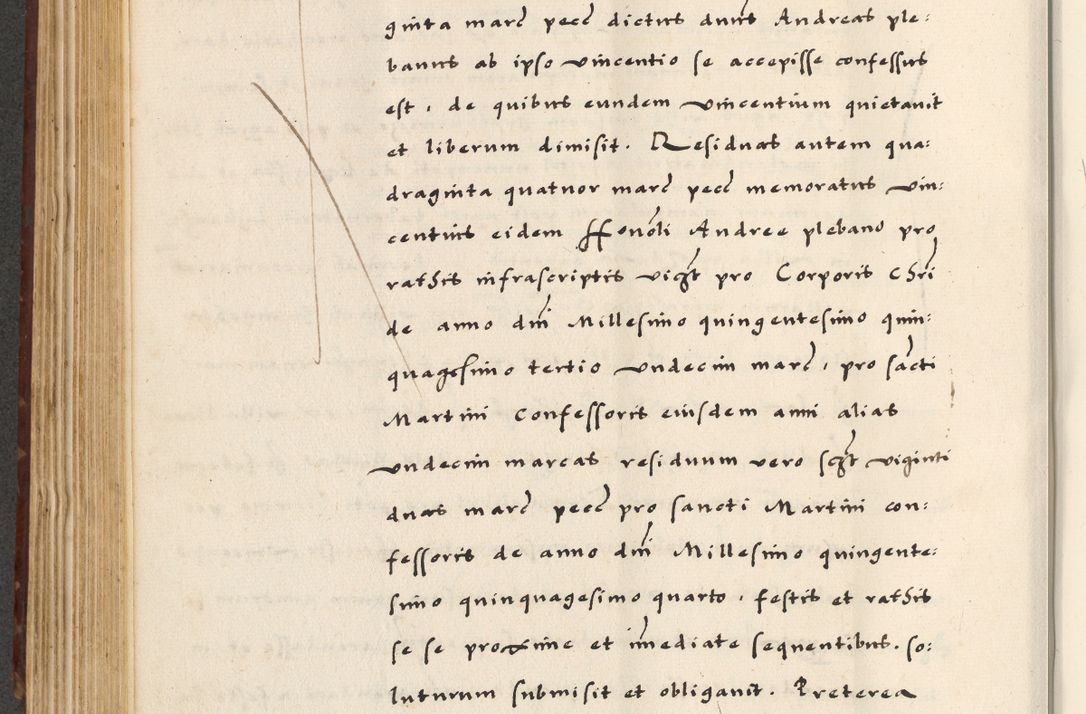 ginta marc pecc dictus dnus Andreas ple:
banus ab ipso vincentio se accepisse confessus
est, de quibus eundem vincentium quietauit
et liberum dimisit. Residuas autem qua:
draginta quatuor marc pecc memoratus vin:
centius eidem Honoli Andree plebano pro
rathis infrascriptis vigt pro Corporis Chri
de anno dni Millesimo quingentesimo quin:
quagesimo tertio vndecim marc, pro sacti
Martini Confessoris eiusdem anni alias
vndecim marcas residuum vero scgt viginti
duas marc pecc pro sancti Martini con:
fessoris de anno dni Millesimo quingente:
simo quinquagesimo quarto, festis et rathis
se se proxime et imediate sequentibus. so:
luturum submisit et obligauit. Preterea